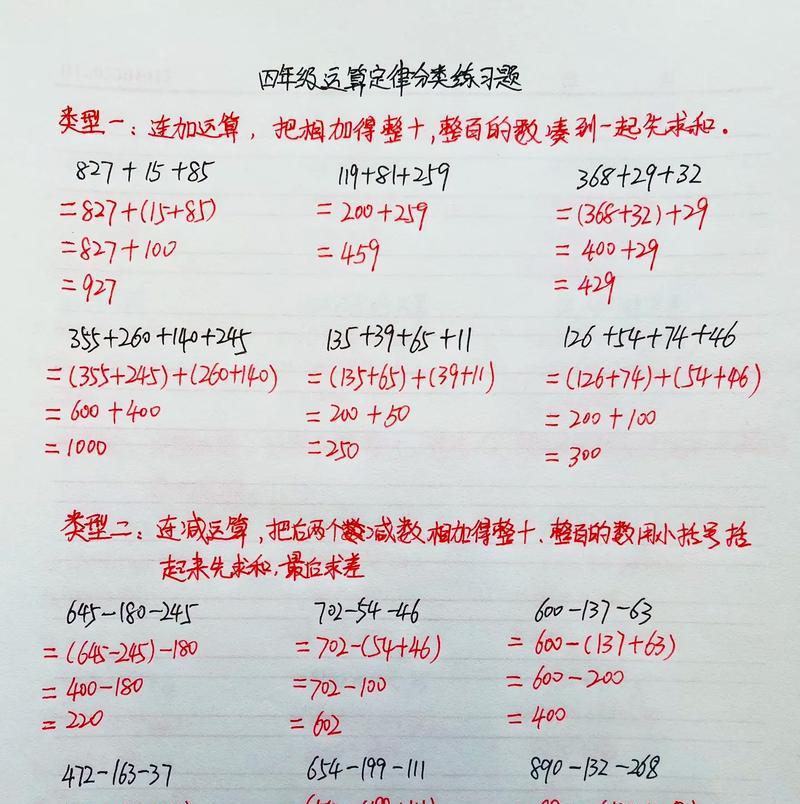 四年级运算定律分类练习题
类型一：连加运算，把相加得整十，整百的数凑到一起先求和。
827+15+85 119+81+259 368+29+32
=827+(15+85) =200+259 =(368+32)+29
=827+100 =459 =400+29
=927 =429
355+260+140+245 135+39+65+11 126+54+74+46
=(355+245)+(260+140) =(135+65)+(39+11) =(126+74)+(54+46)
=600+400 =200+50 =200+100
=1000 =250 =300
类型二：连减运算，把后两个减数相加得整十、整百的数用小括号括
起来先求和，最后求差
645-180-245 702-54-46 600-137-63
=(645-245)-180 =702-(54+46) =600-(137+63)
=400-180 =702-100 =600-200
=220 =602 =400
472-163-37 654-199-111 890-132-268